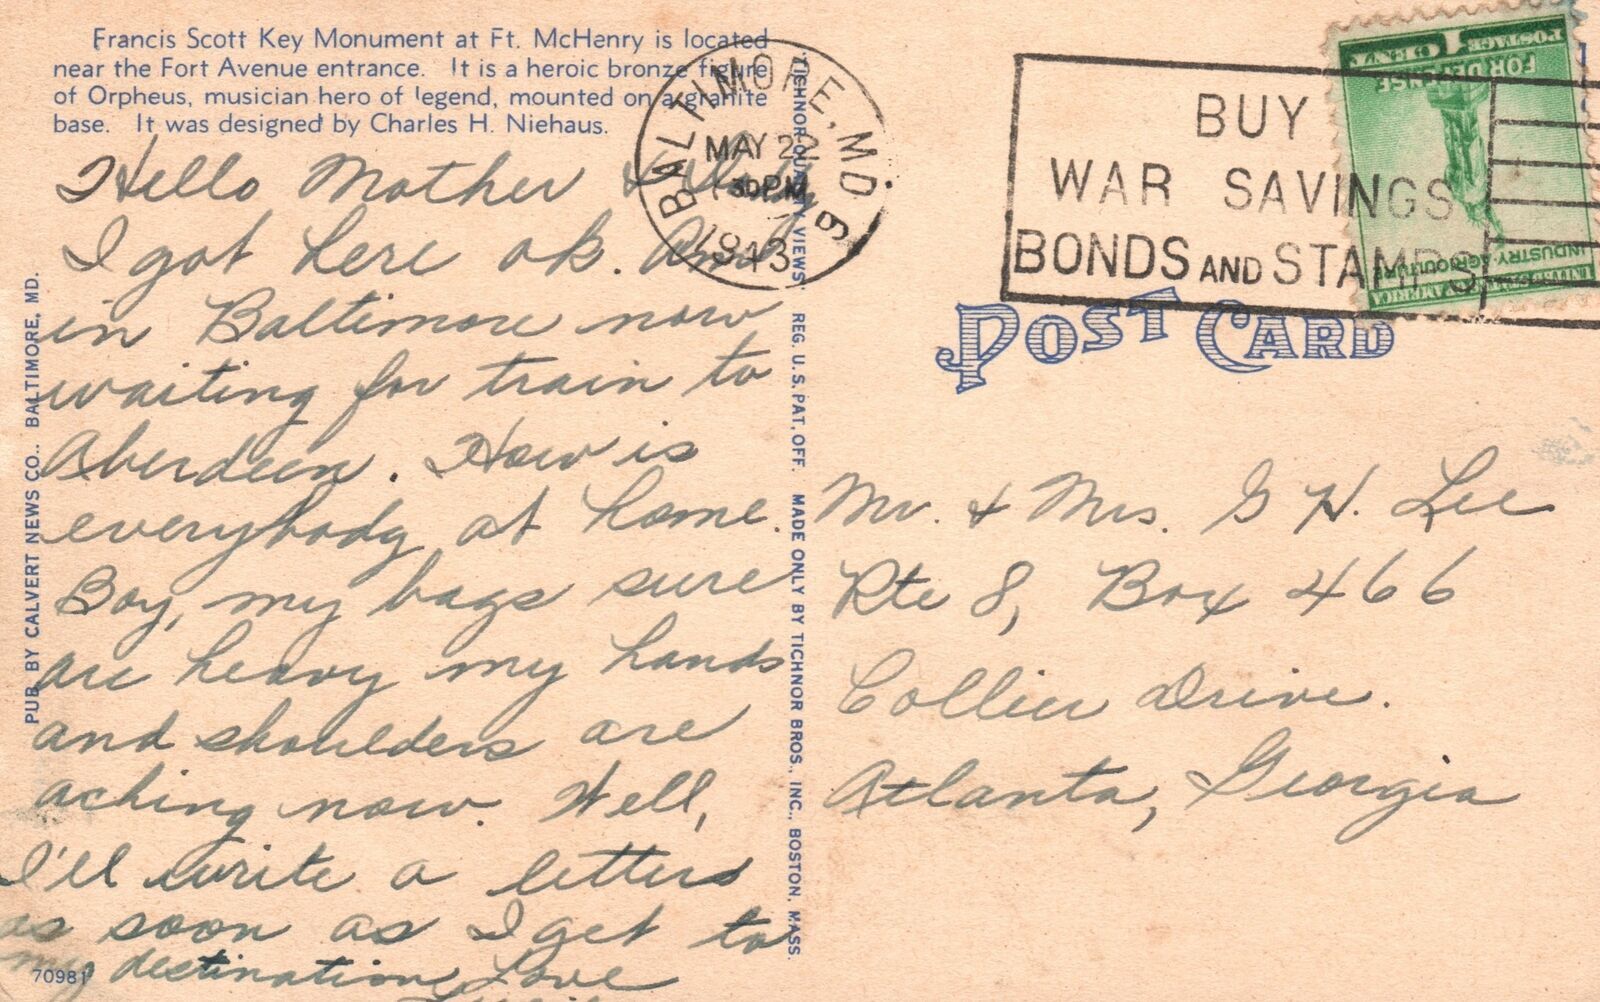 Francis Scott Key Monument at Ft. McHenry is located
near the Fort Avenue entrance. It is a heroic bronze figure
of Orpheus, musician hero of legend, mounted on a granite
base. It was designed by Charles H. Niehaus.
Hello Mother &
I got here ok. And
in Baltimore now
waiting for train to
Aberdeen. How is
everybody at home.
Boy, my bags sure
are heavy my hands
and shoulders are
aching now. Well,
I'll write a letters
as soon as I get to
my destination, Love
70981
PUB. BY CALVERT NEWS CO., BALTIMORE, MD.
TICHNOR QUALITY VIEWS, REG. U. S. PAT. OFF. MADE ONLY BY TICHNOR BROS., INC., BOSTON, MASS.
BALTIMORE, MD. 9
MAY 22
30 PM
1943
BUY
WAR SAVINGS
BONDS AND STAMPS
UNITED STATES OF AMERICA
INDUSTRY-AGRICULTURE
FOR DEFENSE
1 CENT POSTAGE
POST CARD
Mr. & Mrs. G H. Lee
Rte 8, Box 466
Collier Drive.
Atlanta, Georgia